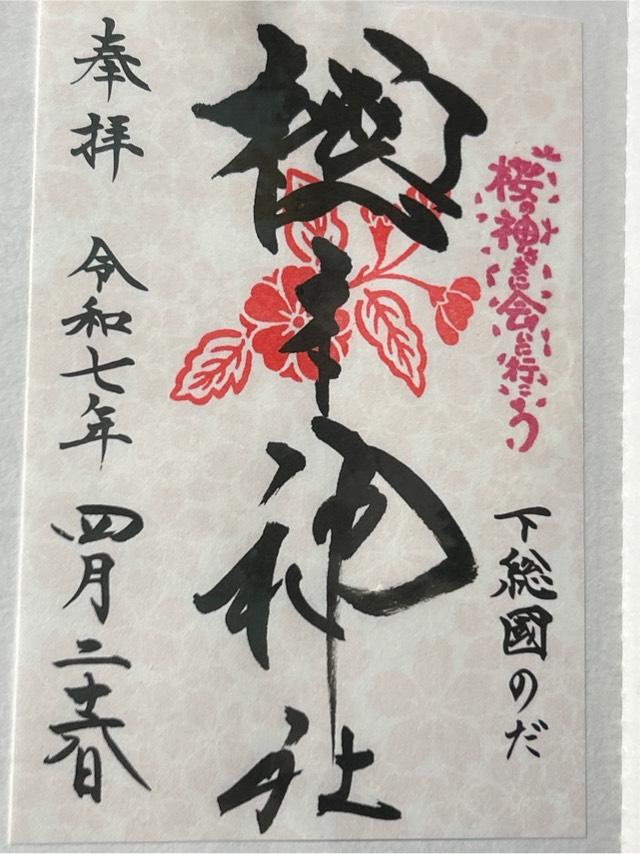 桜の神さまに会いに行こう
下総國のだ
櫻木神社
奉拝
令和七年
四月二十六日